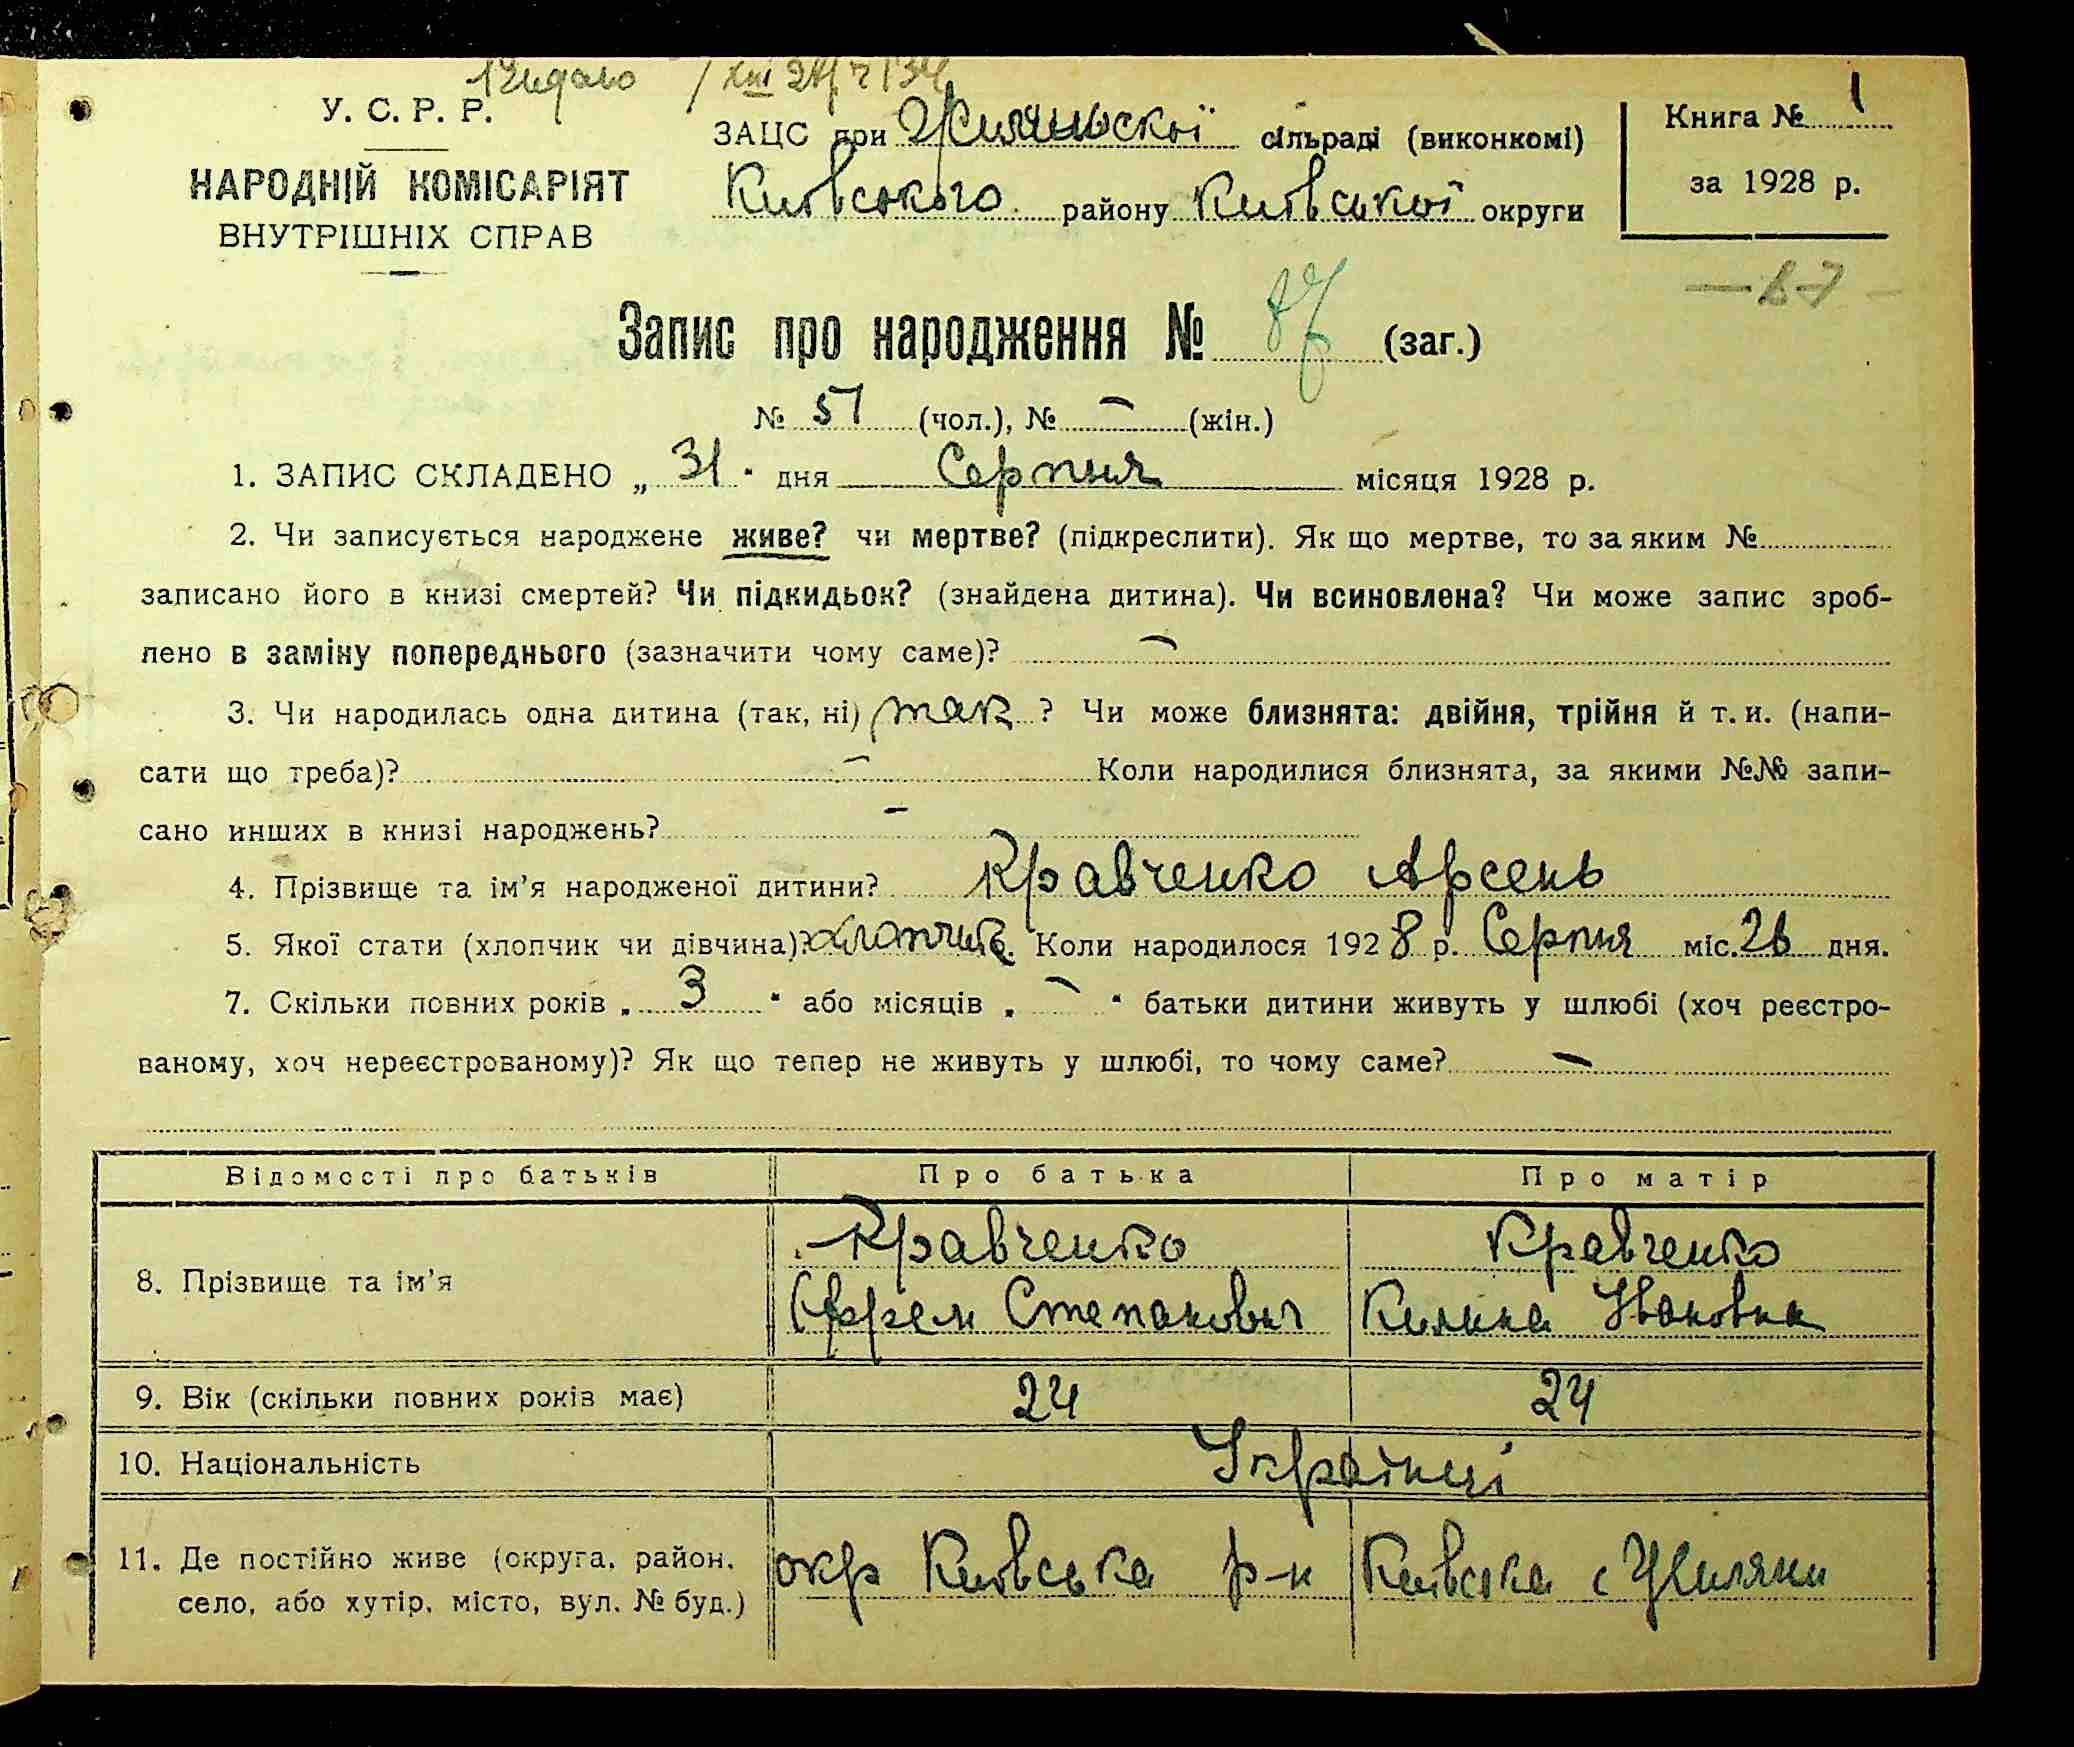 У. С. Р. Р.
НАРОДНІЙ КОМІСАРІЯТ
ВНУТРІШНІХ СПРАВ
ЗАЦС при Жилянської сільраді (виконкомі)
Київського району Київської округи
Книга № 1
за 1928 р.
Запис про народження № 87 (заг.)
— 87 —
№ 51 (чол.), № — (жін.)
1. ЗАПИС СКЛАДЕНО „ 31 " дня Серпня місяця 1928 р.
2. Чи записується народжене живе? чи мертве? (підкреслити). Як що мертве, то за яким №
записано його в книзі смертей? Чи підкидьок? (знайдена дитина). Чи всиновлена? Чи може запис зроб-
лено в заміну попереднього (зазначити чому саме)? —
3. Чи народилась одна дитина (так, ні) так ? Чи може близнята: двійня, трійня й т. и. (напи-
сати що треба)? — Коли народилися близнята, за якими №№ запи-
сано инших в книзі народжень? —
4. Прізвище та ім'я народженої дитини? Кравченко Арсень
5. Якої стати (хлопчик чи дівчина)? хлопчик. Коли народилося 1928 р. Серпня міс. 26 дня.
7. Скільки повних років „ 3 " або місяців „ — " батьки дитини живуть у шлюбі (хоч реєстро-
ваному, хоч нереєстрованому)? Як що тепер не живуть у шлюбі, то чому саме? —
Відомості про батьків Про батька Про матір
8. Прізвище та ім'я Кравченко Єфрем Степанович Кравченко Килина Івановна
9. Вік (скільки повних років має) 24 24
10. Національність Українці
11. Де постійно живе (округа, район, село, або хутір, місто, вул. № буд.) окр Київська р-н Київська с Жиляни